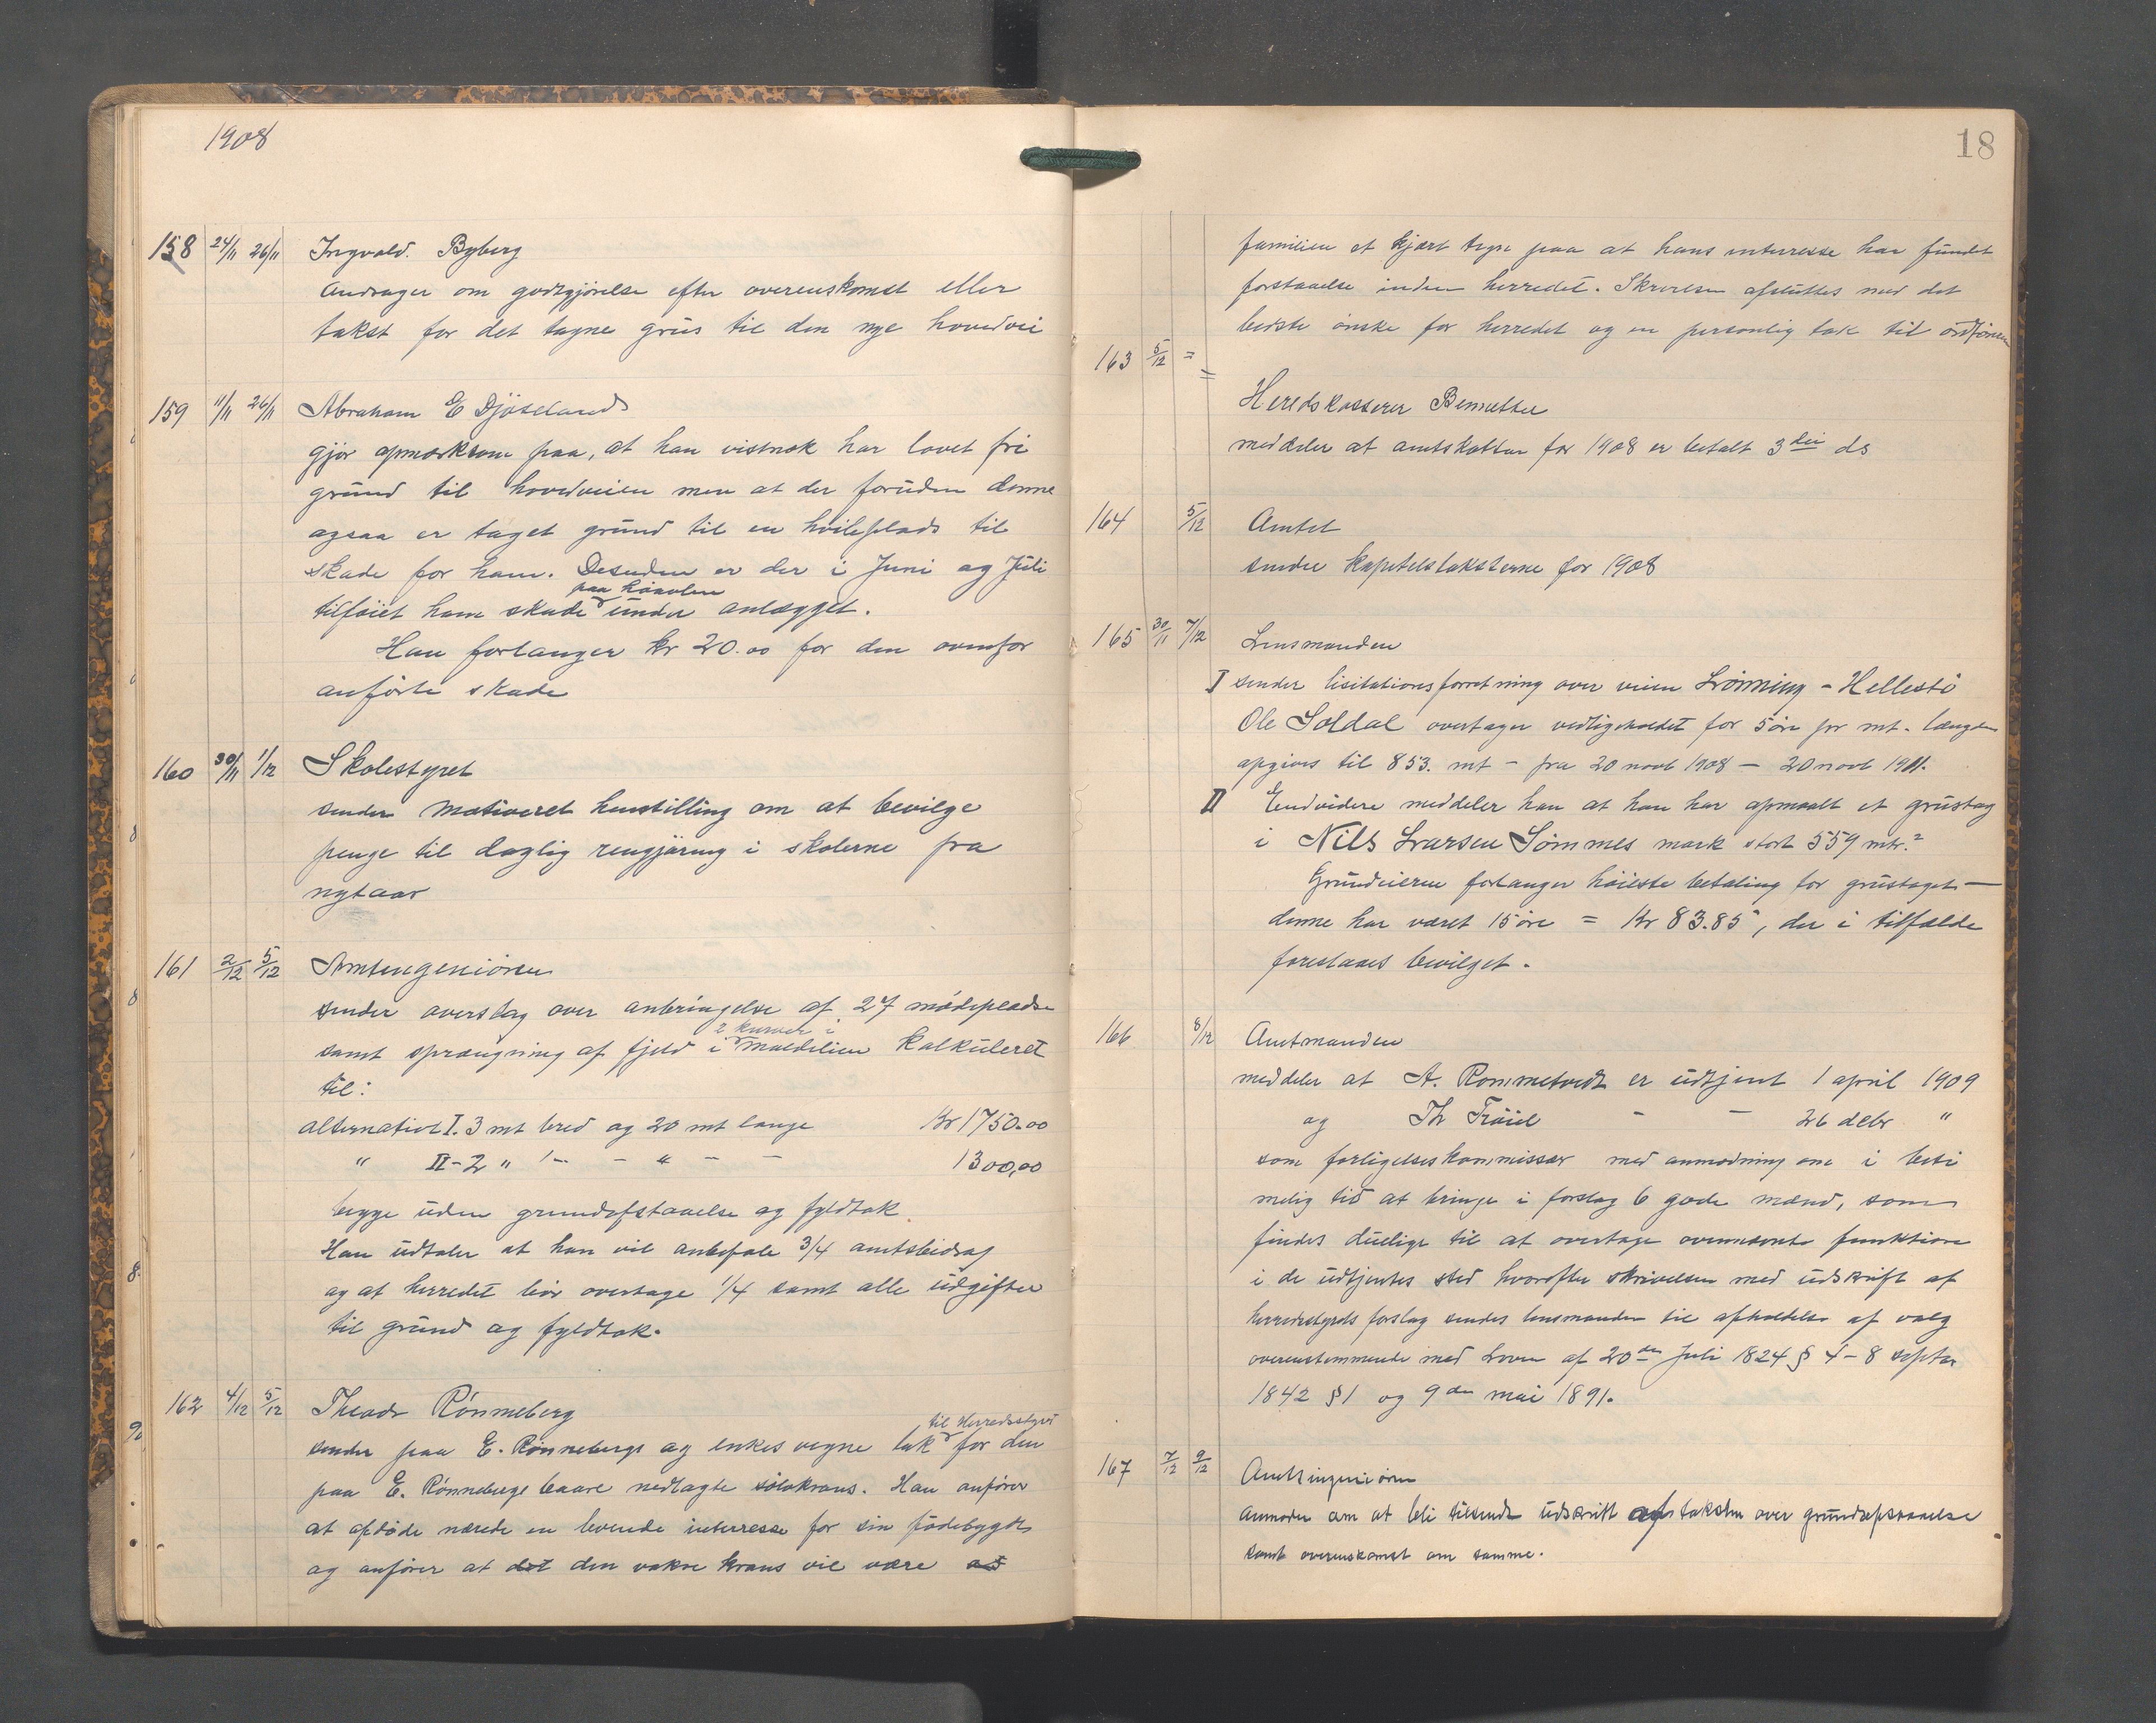 1908
158 24/11 26/11 Ingvald. Byberg
Andrager om godtgjörelse efter overenskomst eller
takst for det tagne grus til den nye hovedvei
159 11/11 26/11 Abraham E Djöseland
gjör opmerksom paa, at han vistnok har lovet fri
grund til hovedveien men at der foruden denne
ogsaa er taget grund til en hvileplads til
skade for ham. Desuden er der i Juni og Juli
paa
tilföiet ham skade under anlægget.
Han forlanger kr 20.00 for den ovenfor
anförte skade
160 30/11 1/12 Skolestyret
sender motiveret henstilling om at bevilge
penge til daglig rengjöring i skolerne fra
nytaar
161 2/12 5/12 Amtsingeniören
sender overslag over anbringelse af 27 mödepladse
2 kurver i
samt sprængning af fjeld i kalkuleret
til:
alternativt I. 3 mt bred og 20 mt lange Kr 1750.00
" II - 2 " - - " - - 1300,00
begge uden grundafstaaelse og fyldtak
Han udtaler at han vil anbefale 3/4 amtsbidrag
og at herredet bör overtage 1/4 samt alle udgifter
til grund og fyldtak.
162 4/12 5/12 Theodr Rönneberg
til Herredsstyret
sender paa E. Rönnebergs og enkes vegne tak for den
paa E. Rönnebergs baare nedlagte sölvkrans. Han anförer
at afdöde nærede en levende interresse for sin födebygd
og anförer at det den vakre krans vil være
18
familien et kjært tegn paa at hans interresse har fundet
forstaaelse inden herredet. Skrivelsen afsluttes med det
bedste önske for herredet og en personlig tak til ordföreren
163 5/12 =
=
Heredskasserer
meddeler at amtskatten for 1908 er betalt 3die ds
164 5/12 Amtet
sender kapitelstaksterne for 1908
165 30/11 7/12 Lensmanden
I sender lisitationsforretning over veien Lönning - Hellestö
Ole Soldal overtager vedligeholdet for 5 öre pr mt. længden
opgives til 853. mt - fra 20 novb 1908 - 20 novb 1911.
II Endvidere meddeler han at han har opmaalt et grustag
i Nils Larsen Sömmes mark stort 559 mtr.²
Grundeieren forlanger höieste betaling for grustaget -
denne har været 15 öre = Kr 83.85, der i tilfælde
foreslaaes bevilget.
166 8/12 Amtmanden
meddeler at A. Rommetvedt er udtjent 1 april 1909
og Th - - 26 debr "
som forligelseskommissær med anmodning om i beti
melig tid at bringe i forslag 6 gode mænd, som
findes duelige til at overtage ovennevnte funktion
i de udtjentes sted hvorefter skrivelsen med udskrift af
herredsstyrets forslag sendes lensmanden til afholdelse af valg
overenstemmende med Loven af 20de Juli 1824 § 4 - 8 septbr
1842 § 1 og 9de mai 1891.
167 7/12 9/12 Amtsingeniören
anmoder om at bli tilsendt udskrift af taksten over grundafstaaelse
samt overenskomst om samme.